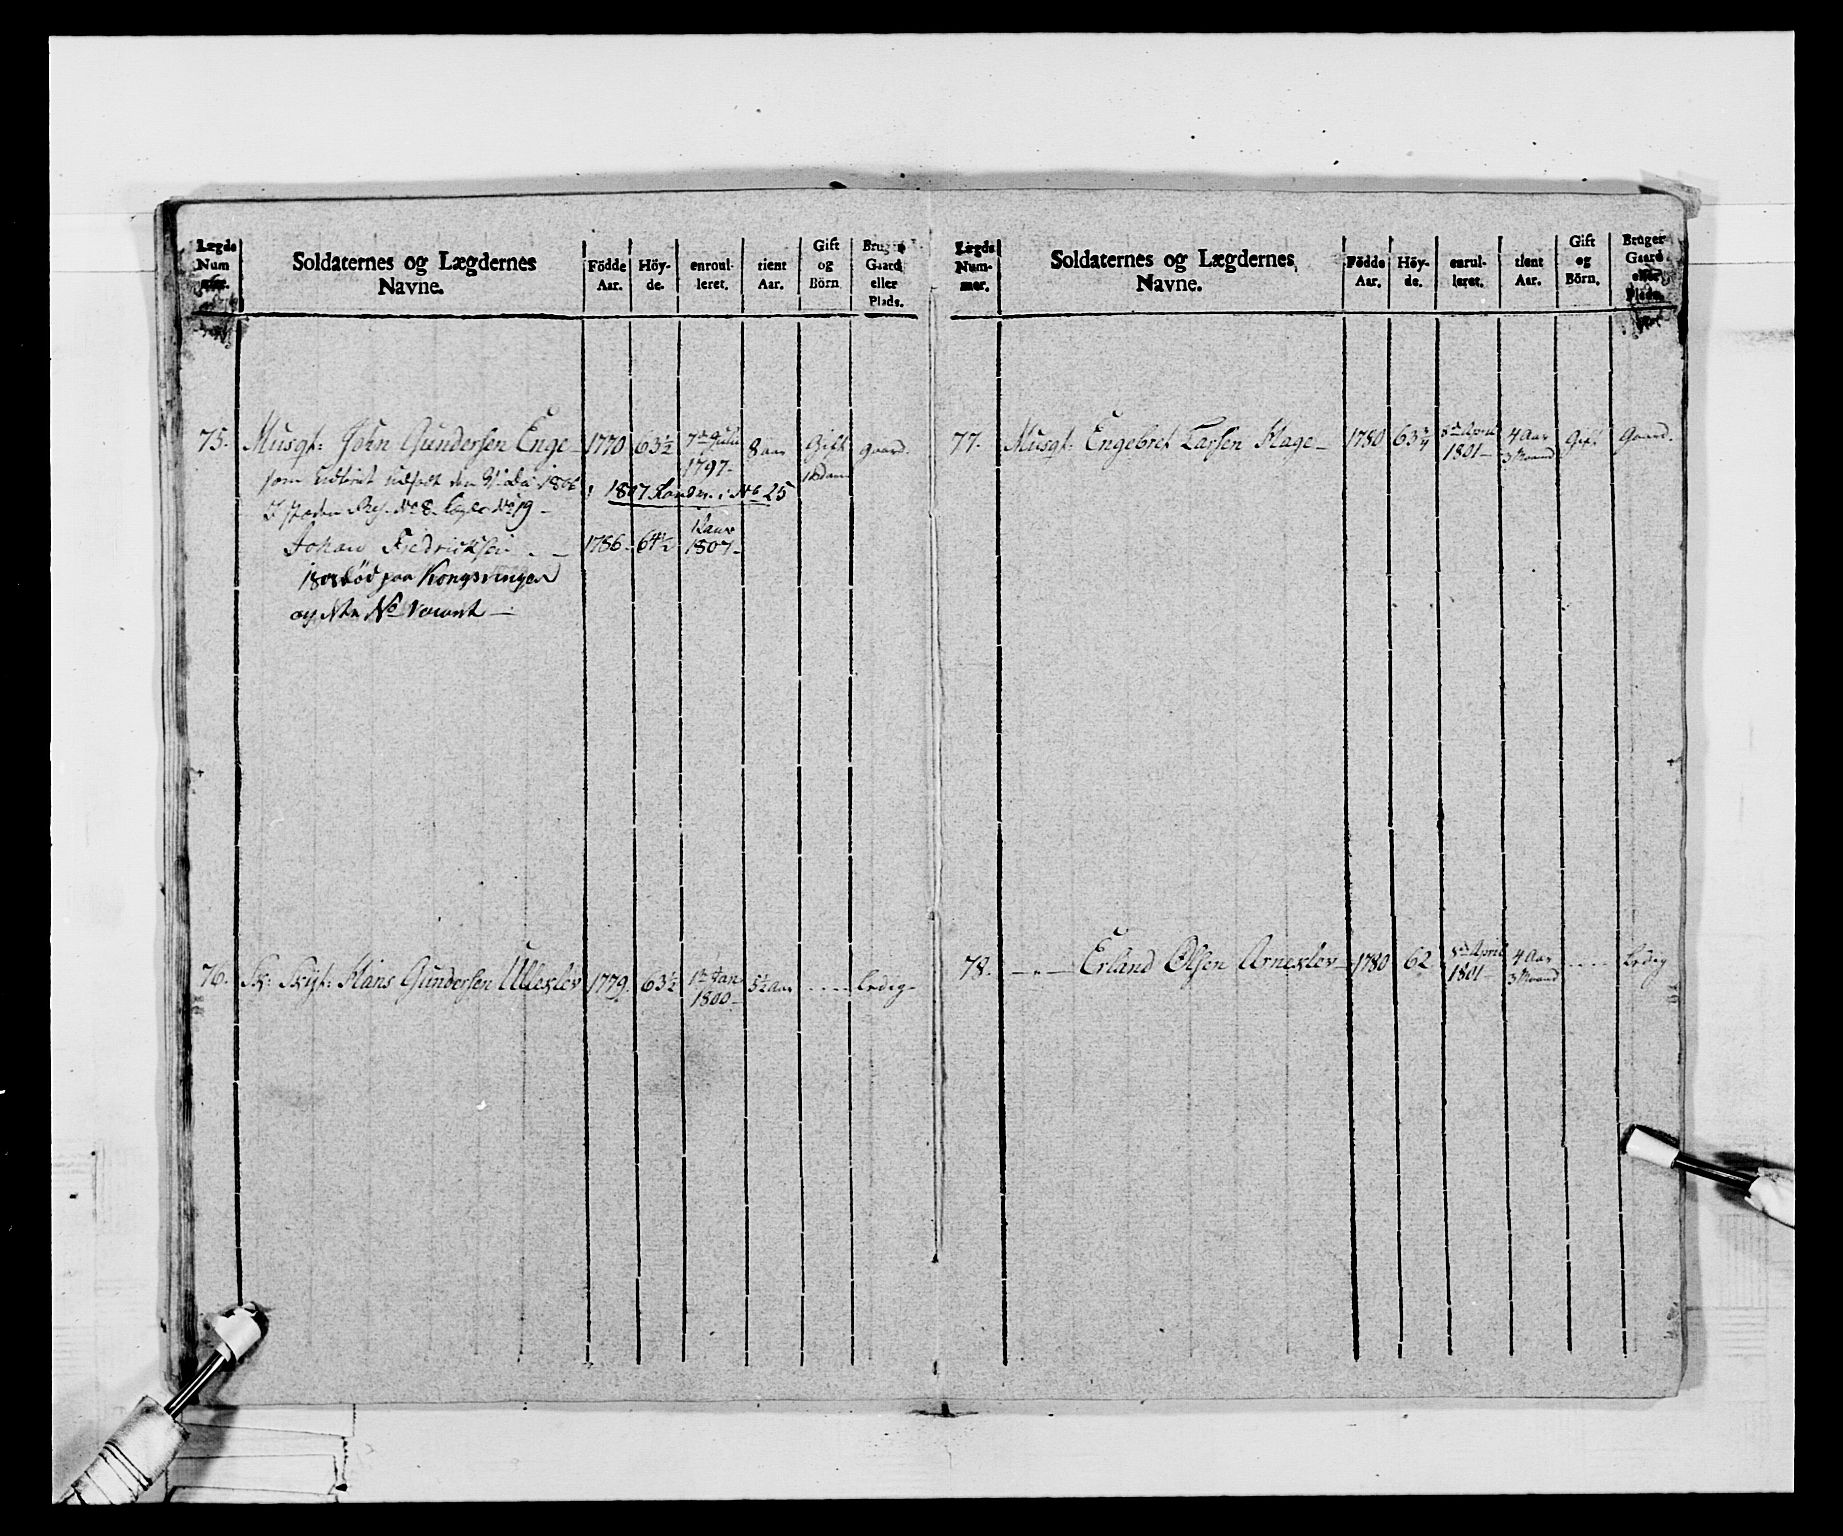 Lægds Num mer.	Soldaternes og Lægdernes Navne.	Födde Aar.	Höy- de.	enroul- leret.	tient Aar.	Gift og Börn	Bruger Gaard eller Plads.
75. Musqt: John Gundersen Enge - 1770 63½ 7de Juli 1797 - 8 aar Gift 1 Barn Gaard.
som udtient udsadt den 1806
1807 i No 25
Johan Fredricksen - 1786 - 64½ Janr 1807 -
1808 död paa Kongsvinger
og No vacant -
76. Hans Gundersen Ullexlev 1779. 63½ 1te Jan 1800 - 5½ aar ---- Ledig -
Lægds Num- mer.	Soldaternes og Lægdernes Navne.	Födde Aar.	Höy- de.	enrul- leret.	tient Aar.	Gift og Börn.	Bruger Gaard eller Plads.
77. Musqt: Engebret Larsen Hage - 1780 63¾ April 1801 - 4 Aar 3 Maaned Gift Gaard.
78. - " - Erland Olsen Arnexlev - 1780 62 April 1801 - 4 Aar 3 Maaned ---- Ledig